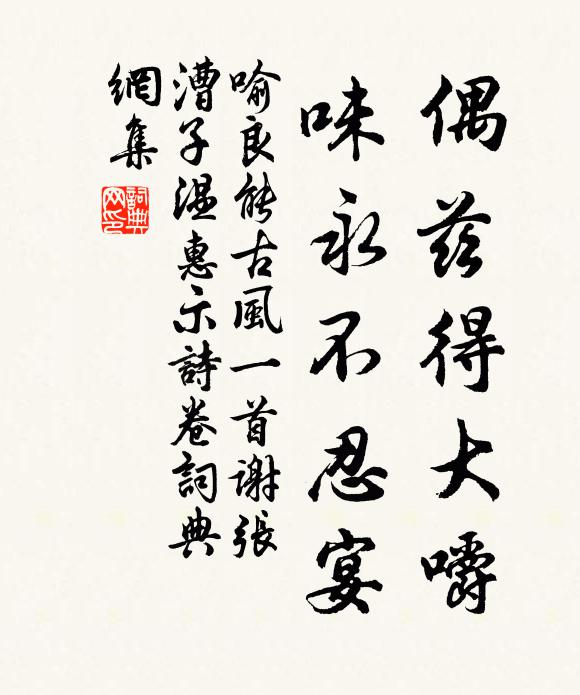 偶茲得大嚼
味永不忍宴
喻良能古風一首謝張
漕子温惠示詩卷詞典
網集
詞典网印